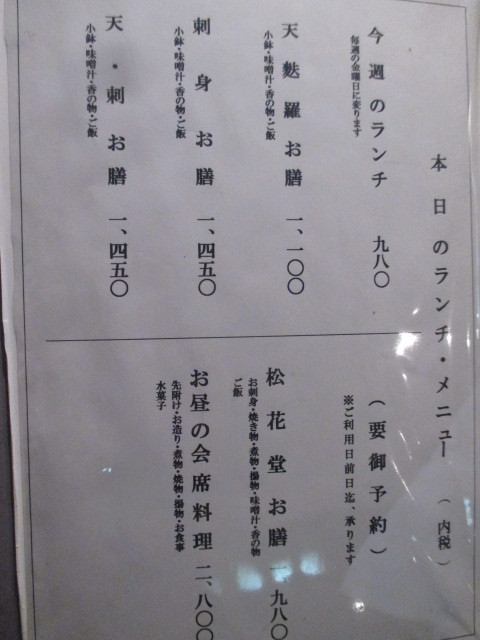 本日のランチ・メニュー （内税）
今週のランチ 九八〇
毎週の金曜日に変ります
天麩羅お膳 一、一〇〇
小鉢・味噌汁・香の物・ご飯
刺身お膳 一、四五〇
小鉢・味噌汁・香の物・ご飯
天・刺お膳 一、四五〇
小鉢・味噌汁・香の物・ご飯
（要御予約）
※ご利用日前日迄、承ります
松花堂お膳 一、九八〇
お刺身・焼き物・煮物・揚物・味噌汁・香の物
ご飯
お昼の会席料理 二、八〇〇
先附け・お造り・煮物・焼物・揚物・お食事
水菓子